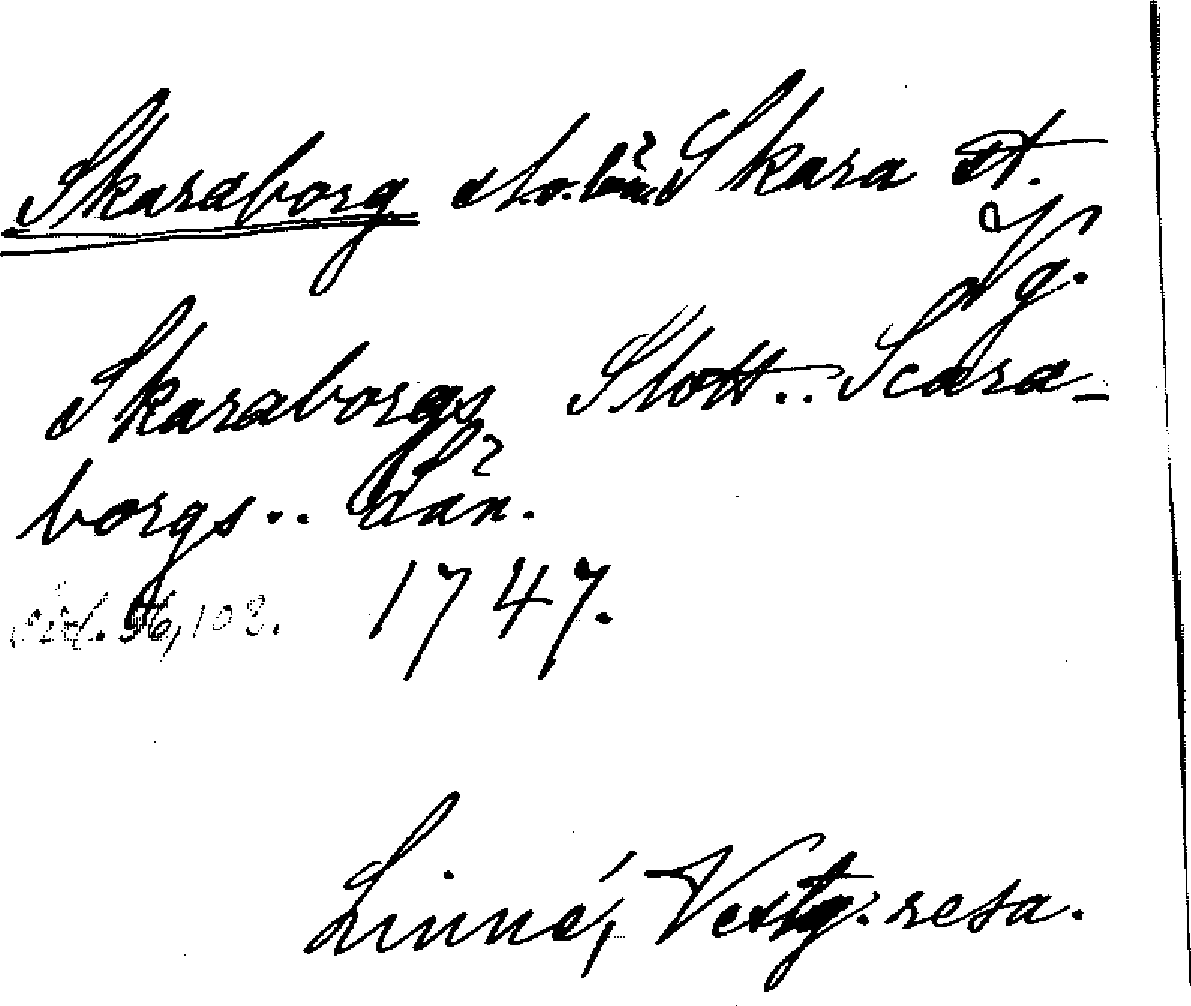 Skaraborg sl. o. län. Skara st.
Vg.
Skaraborgs Slott.. Scara-
borgs.. Län.
sid. 56, 103. 1747.
Linné, Vestg. resa.